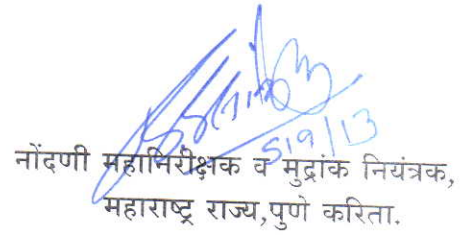 5/9/13
नोंदणी महानिरीक्षक व मुद्रांक नियंत्रक,
महाराष्ट्र राज्य,पुणे करिता.